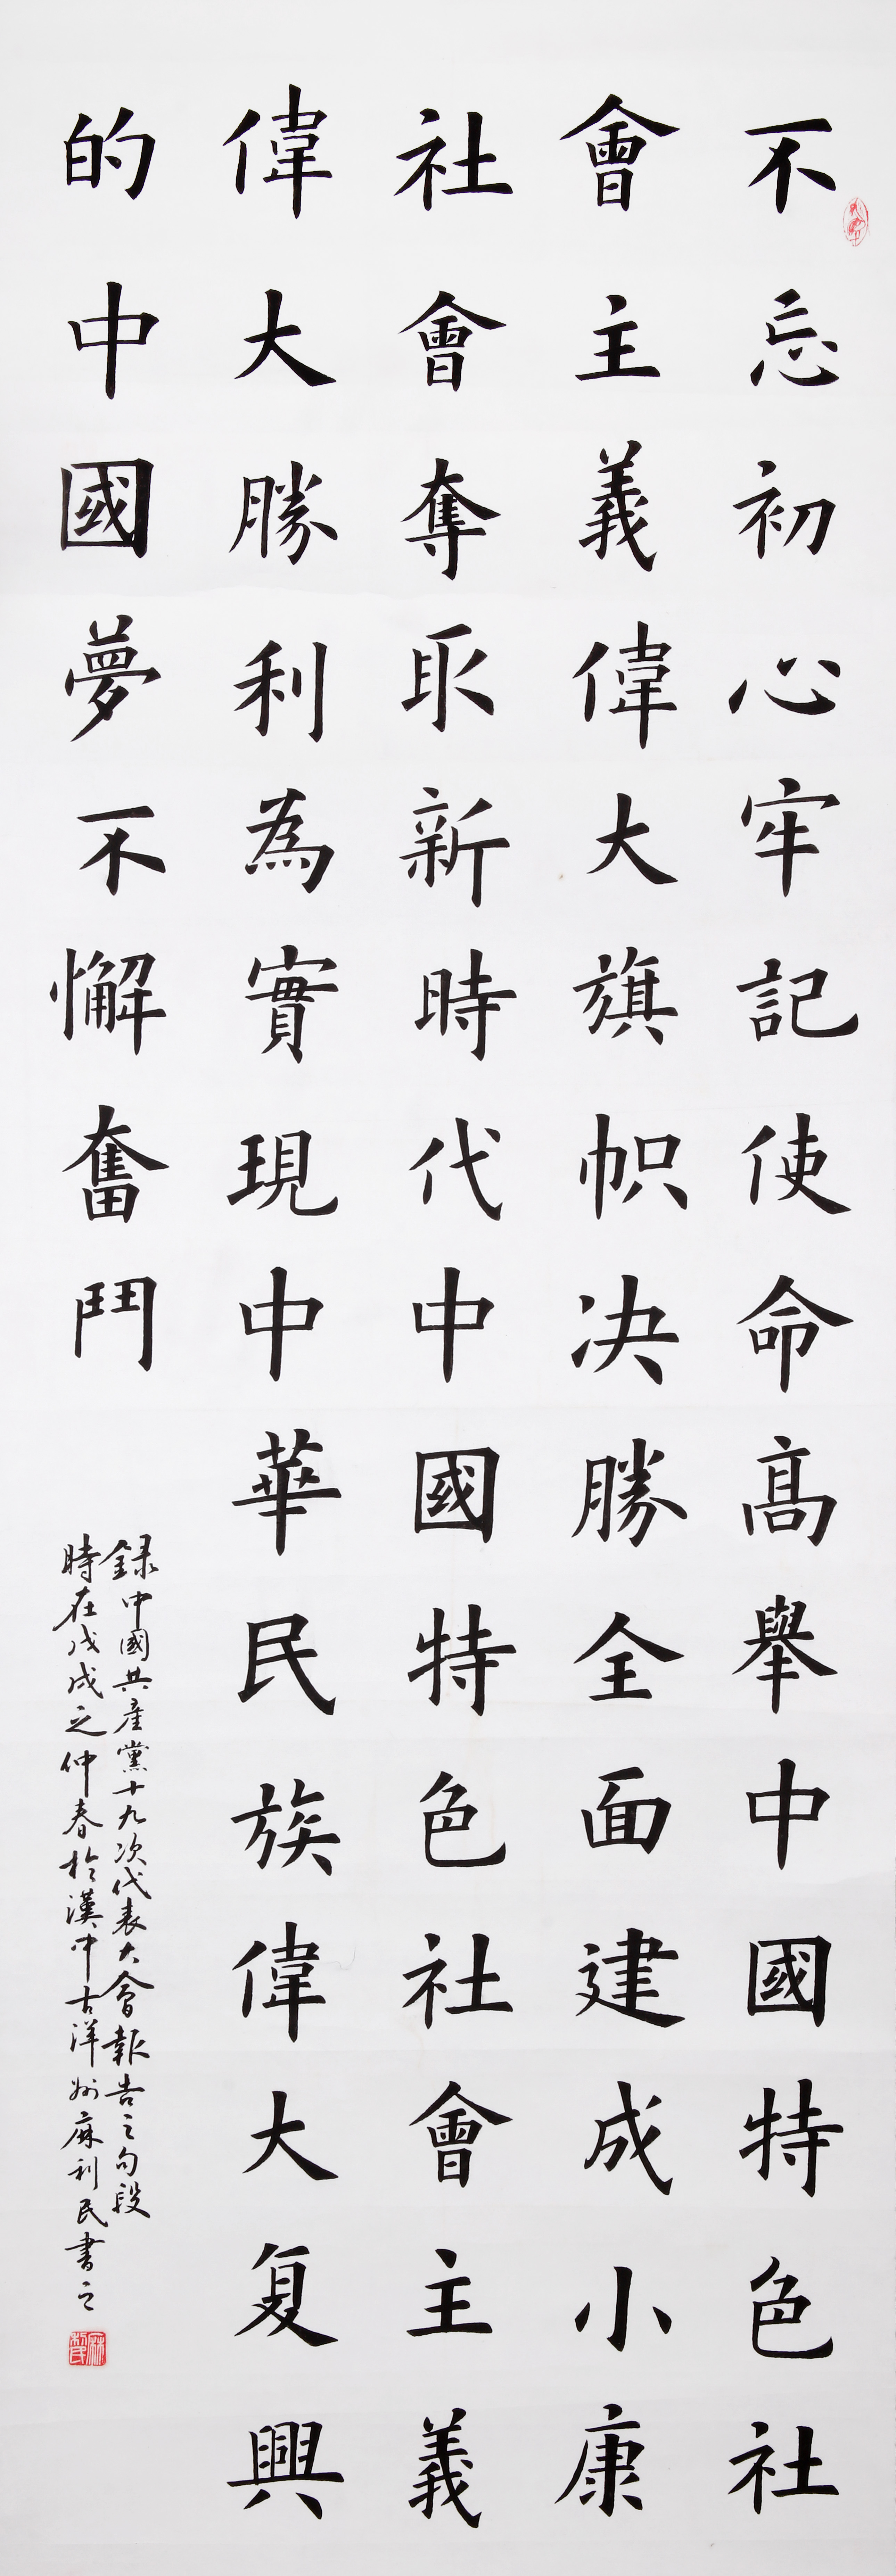 不忘初心牢記使命高舉中國特色社
會主義偉大旗帜决勝全面建成小康
社會奪取新時代中國特色社會主義
偉大勝利為實現中華民族偉大复興
的中國夢不懈奮鬥
録中國共產黨十九次代表大會報告之句段
時在戊戌之仲春於漢中古洋州麻利民書之